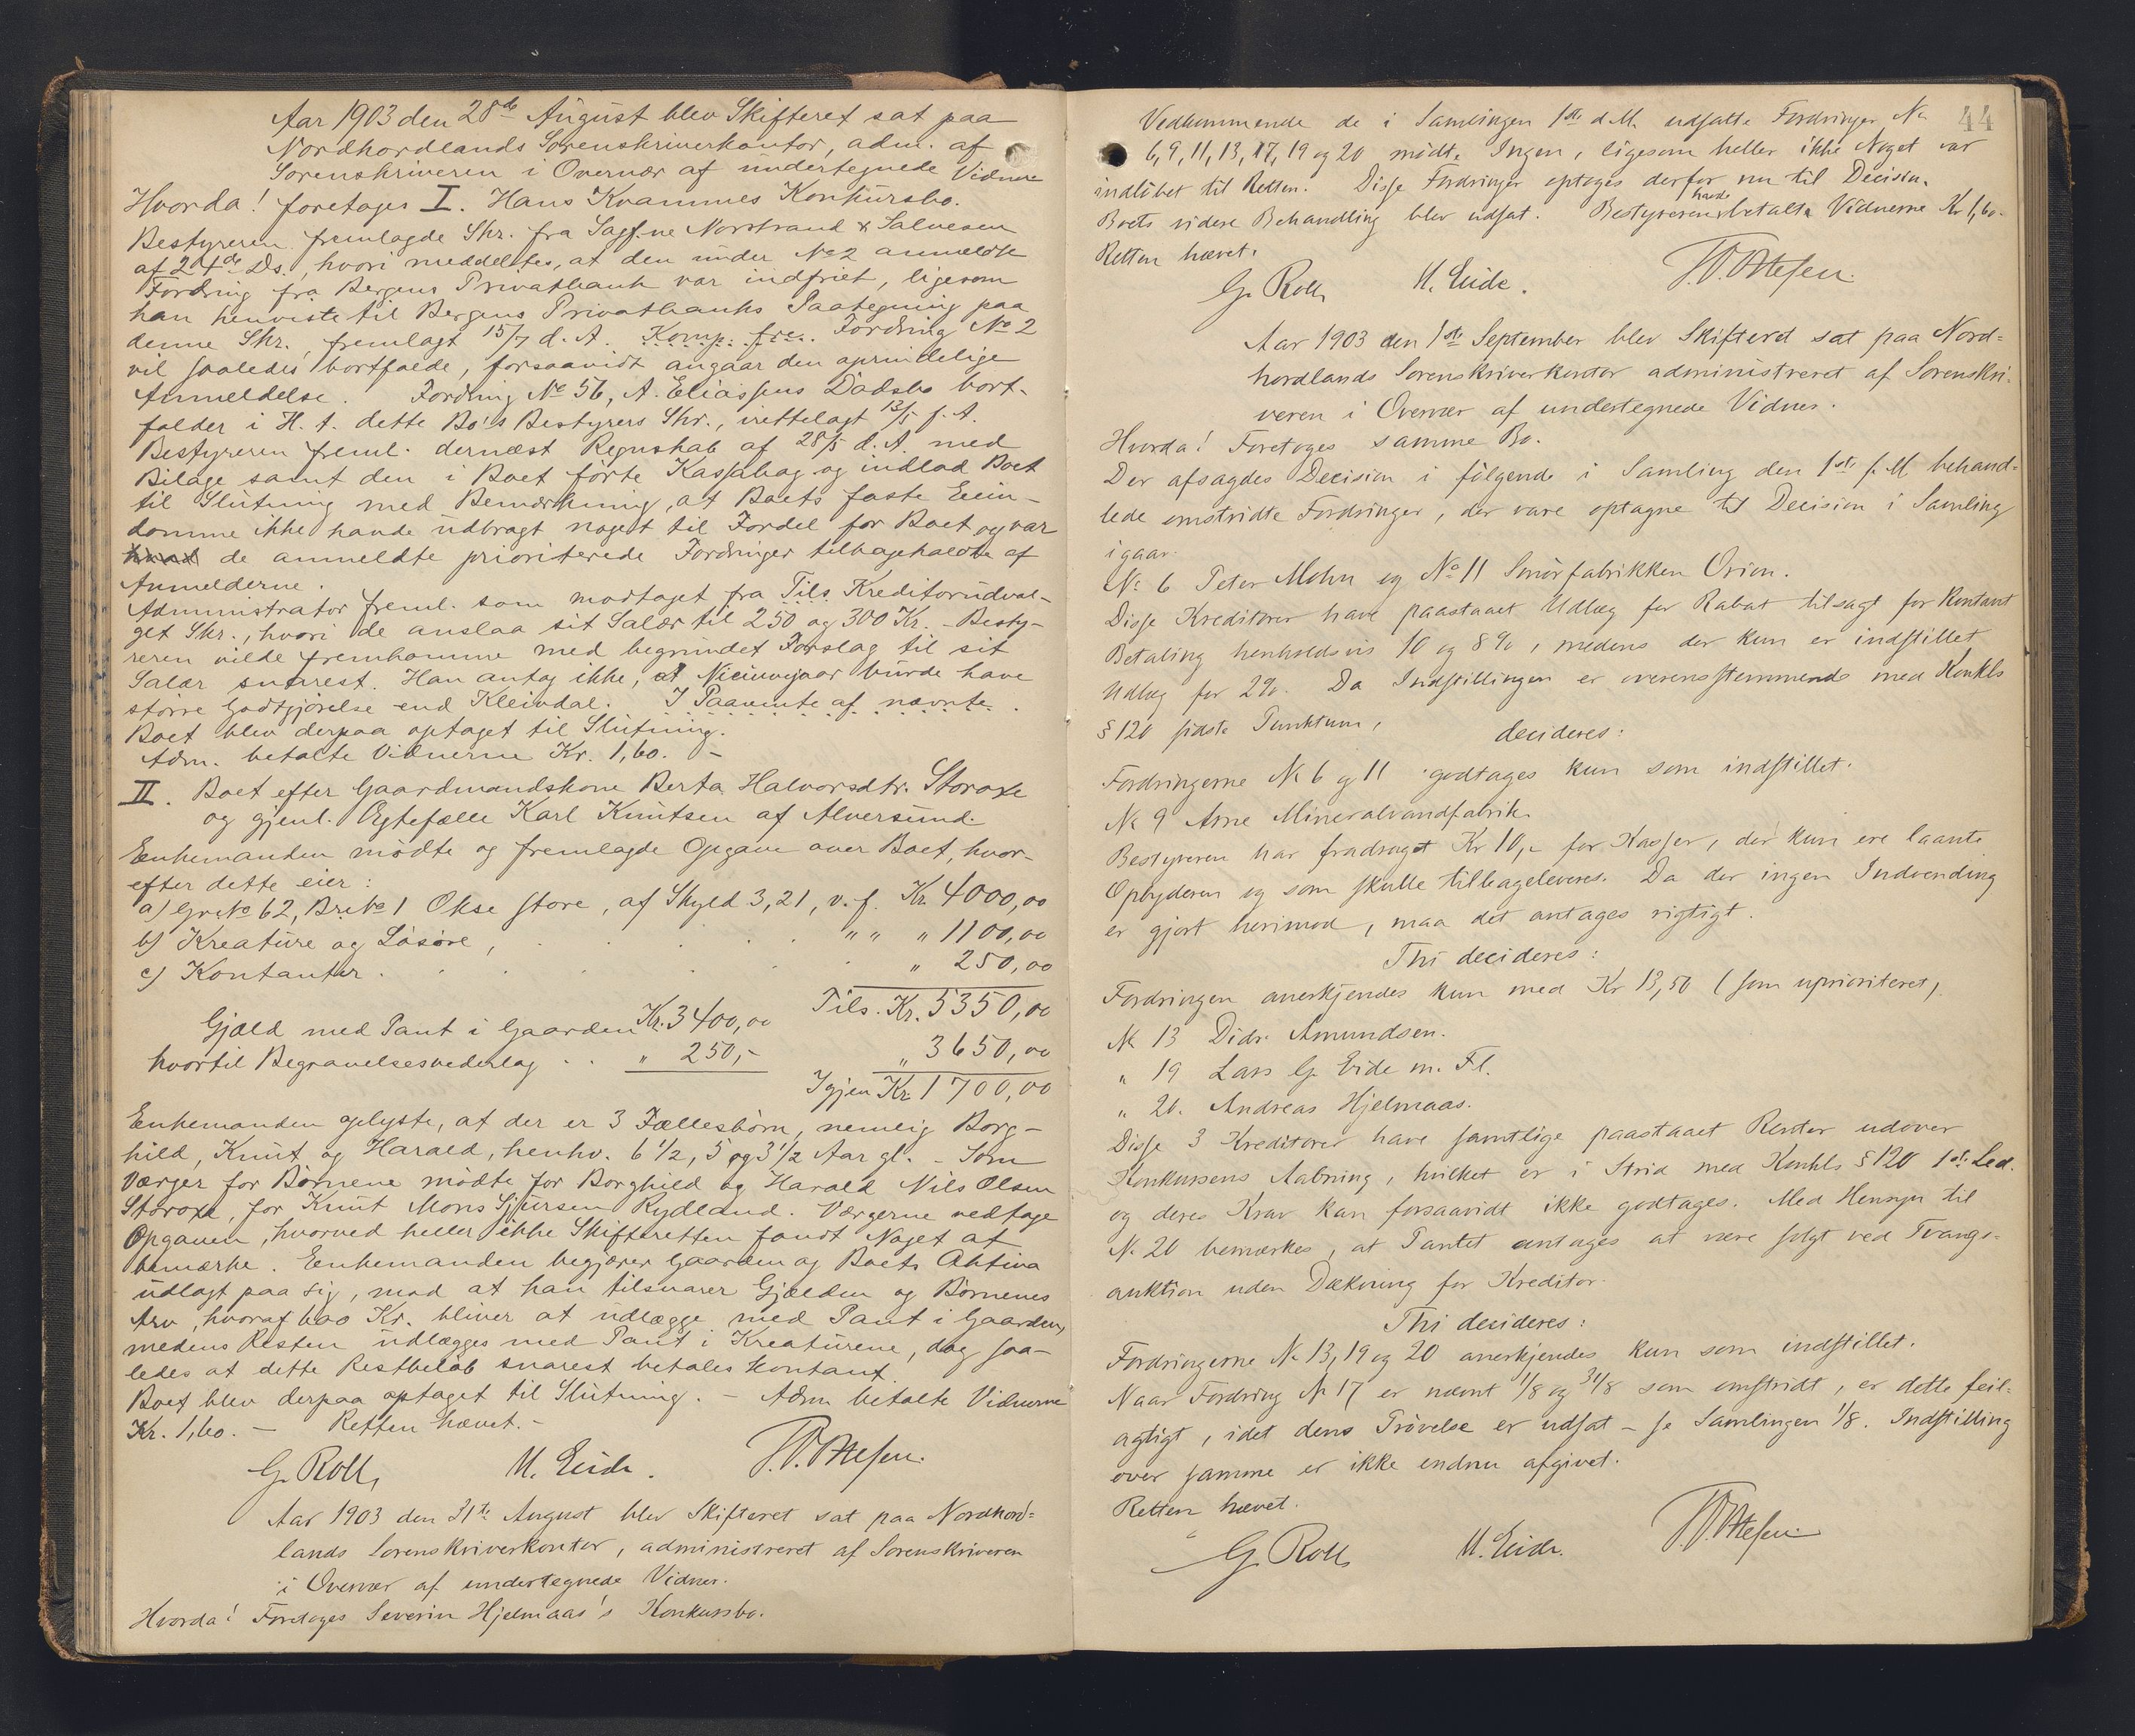 Aar 1903 den 28de August blev Skifteret sat paa
Nordhordlands Sorenskriverkontor, adm. af
Sorenskriveren i Overvær af undertegnede Vidner
Hvorda! foretoges I. Hans Kvammes Konkursbo.
Bestyreren fremlagde Skr. fra Sagf.ne Norstrand & Salvesen
af 24de Ds., hvori meddeltes, at den under No 2 anmeldte
Fordring fra Bergens Privatbank var indfriet, ligesom
han henviste til Bergens Privatbanks Paategning paa
denne Skr. fremlagt 15/7 d. A. Komp. fre. Fordring No 2
vil saaledes bortfalde, forsaavidt angaar den oprindelige
Anmeldelse. Fordring No 56, A. Eliassens Dødsbo bort-
falder i H. t. dette Bo's Bestyrers Skr., irettelagt 13/5 f. A.
Bestyreren freml. dernæst Regnskab af 28/5 d. A. med
Bilage samt den i Boet førte Kassabog og indlod Boet
til Slutning med Bemærkning, at Boets faste Eien-
domme ikke havde udbragt noget til Fordel for Boet og var
de anmeldte prioriterede Fordringer tilbageholdte af
Anmelderne.
Administrator freml. som modtaget fra Tils. Kreditorudval-
get Skr., hvori de anslaa sit Salær til 250 og 300 Kr. - Besty-
reren vilde fremkomme med begrundet Forslag til sit
Salær snarest. Han antog ikke, at Nicuwejaar burde have
større Godtgjørelse end Kleivdal. I Paavente af nævnte.
Boet blev derpaa optaget til Slutning.
Adm. betalte Vidnerne Kr. 1,60. -
II. Boet efter Gaardmandskone Berta Halvorsdtr. Storoxe
og gjenl. Ægtefælle Karl Knutsen af Alversund.
Enkemanden mødte og fremlagde Opgave over Boet, hvor-
efter dette eier:
a) Gr.No 62, Br.No 1 Okse store, af Skyld 3,21, v. f. Kr. 4000,00
b) Kreature og Løsøre, . . . . . " " " 1100,00
c) Kontanter . . . . . . " 250,00
Tils. Kr. 5350,00
Gjæld med Pant i Gaarden Kr. 3400,00
hvortil Begravelsesvederlag . . " 250,- " 3650,00
Igjen Kr 1700,00
Enkemanden oplyste, at der er 3 Fællesbørn, nemlig Borg-
hild, Knut og Harald, henhv. 6 1/2, 5 og 3 1/2 Aar gl. - Som
Værger for Børnene mødte for Borghild og Harald Nils Olsen
Storoxe, for Knut Mons Sjursen Rydland. Værgerne vedtoge
Opgaven, hvorved heller ikke Skifteretten fandt Noget at
bemærke. Enkemanden begjærer Gaarden og Boets Aktiva
udlagt paa sig, mod at han tilsvarer Gjælden og Børnenes
Arv, hvoraf 600 Kr. bliver at udlægge med Pant i Gaarden,
medens Resten udlægges med Pant i Kreaturene, dog saa-
ledes at dette Restbeløb snarest betales kontant.
Boet blev derpaa optaget til Slutning. - Adm betalte Vidnerne
Kr. 1,60. - Retten hævet. -
G. Roll M. Eide.
Aar 1903 den 31te August blev Skifteret sat paa Nordhord=
lands Sorenskriverkontor, administreret af Sorenskriveren
i Overvær af undertegnede Vidner.
Hvorda! Foretoges Severin Hjelmaas's Konkursbo.
44
Vedkommende de i Samlingen 1ste d. M. udsatte Fordringer No
6, 9, 11, 13, 17, 19 og 20 mødte Ingen, ligesom heller ikke Noget var
indløbet til Retten. Disse Fordringer optoges derfor nu til Decision.
Boets videre Behandling blev udsat. Bestyreren havde betalt Vidnerne Kr 1,60.
Retten hævet.
G. Roll M. Eide.
Aar 1903 den 1ste September blev Skifteret sat paa Nord=
hordlands Sorenskriverkontor administreret af Sorenskri-
veren i Overvær af undertegnede Vidner.
Hvorda! Foretoges samme Bo.
Der afsagdes Decision i følgende i Samling den 1ste f. M. behand=
lede omstridte Fordringer, der vare optagne til Decision i Samling
igaar.
No 6 Peter Mohn og No 11 Smørfabrikken Orion.
Disse Kreditorer have paastaaet Udlæg for Rabat tilsagt for Kontant
Betaling henholdsvis 10 og 8 %, medens der kun er indstillet
Udlæg for 2%. Da Indstillingen er overensstemmende med Konkls
§ 120 sidste Punktum,
decideres:
Fordringerne No 6 og 11 godtages kun som indstillet.
No 9 Arne Mineralvandfabrik.
Bestyreren har fradraget Kr 10,- for Kasser, der kun ere laante
Opbyderen og som skulle tilbageleveres. Da der ingen Indvending
er gjort herimod, maa det antages rigtigt.
Thi decideres:
Fordringen anerkjendes kun med Kr 13,50 (som uprioriteret).
No 13 Didr. Amundsen.
" 19 Lars G. Eide m. Fl.
" 20. Andreas Hjelmaas.
Disse 3 Kreditorer have samtlige paastaaet Renter udover
Konkursens Aabning, hvilket er i Strid med Konkls § 120 1ste Led.
og deres Krav kan forsaavidt ikke godtages. Med Hensyn til
No 20 bemærkes, at Pantet antages at være solgt ved Tvangs-
auktion uden Dækning for Kreditor.
Thi decideres:
Fordringerne No 13, 19 og 20 anerkjendes kun som indstillet.
Naar Fordring No 17 er nævnt 1/8 og 31/8 som omstridt, er dette feil-
agtigt, idet dens Prøvelse er udsat - se Samlingen 1/8. Indstilling
over samme er ikke endnu afgivet.
Retten hævet.
G. Roll M. Eide.